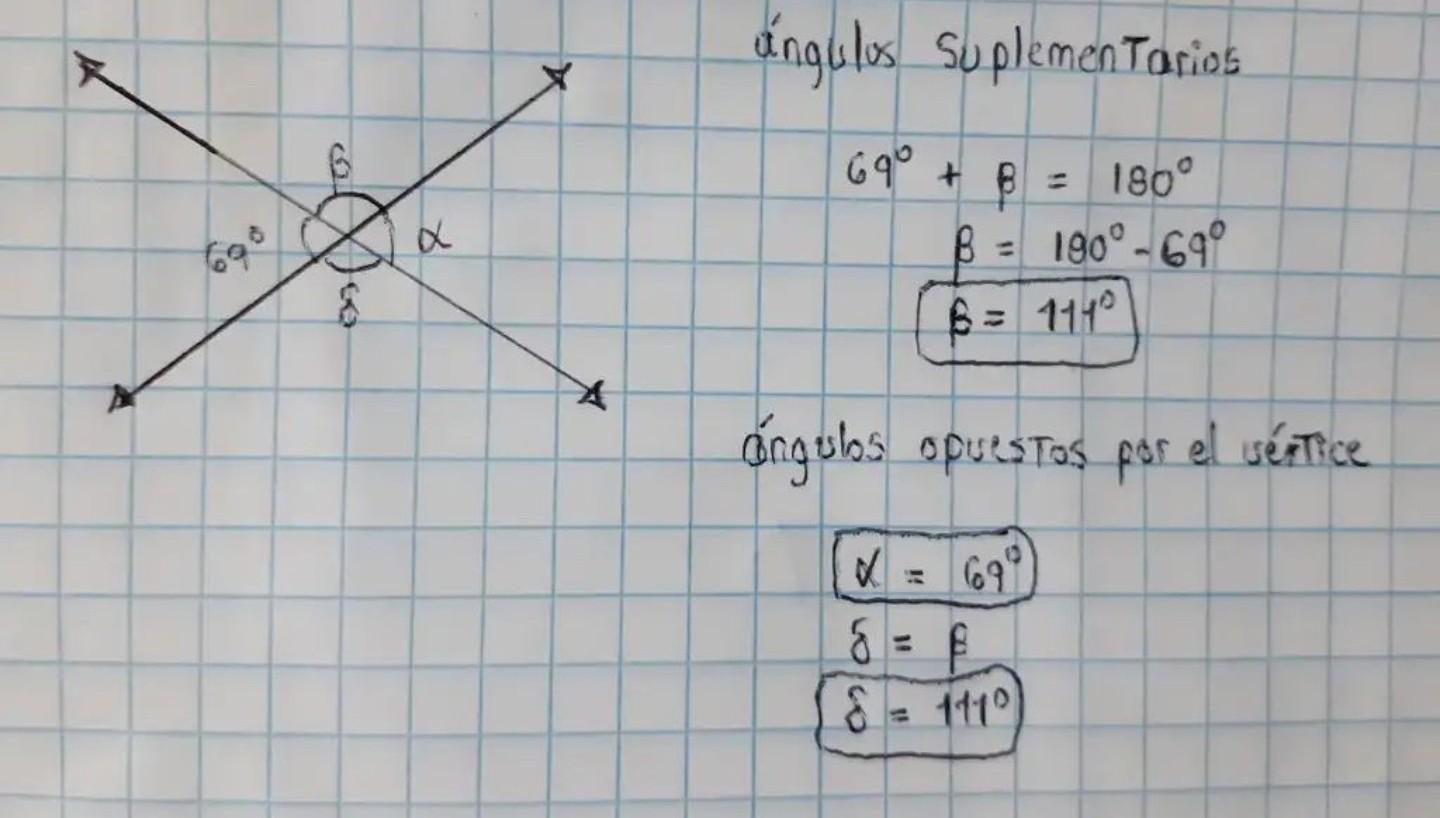 ángulos suplementarios
β
69° + β = 180°
69° α
β = 180° - 69°
δ
β = 111°
ángulos opuestos por el vértice
α = 69°
δ = β
δ = 111°